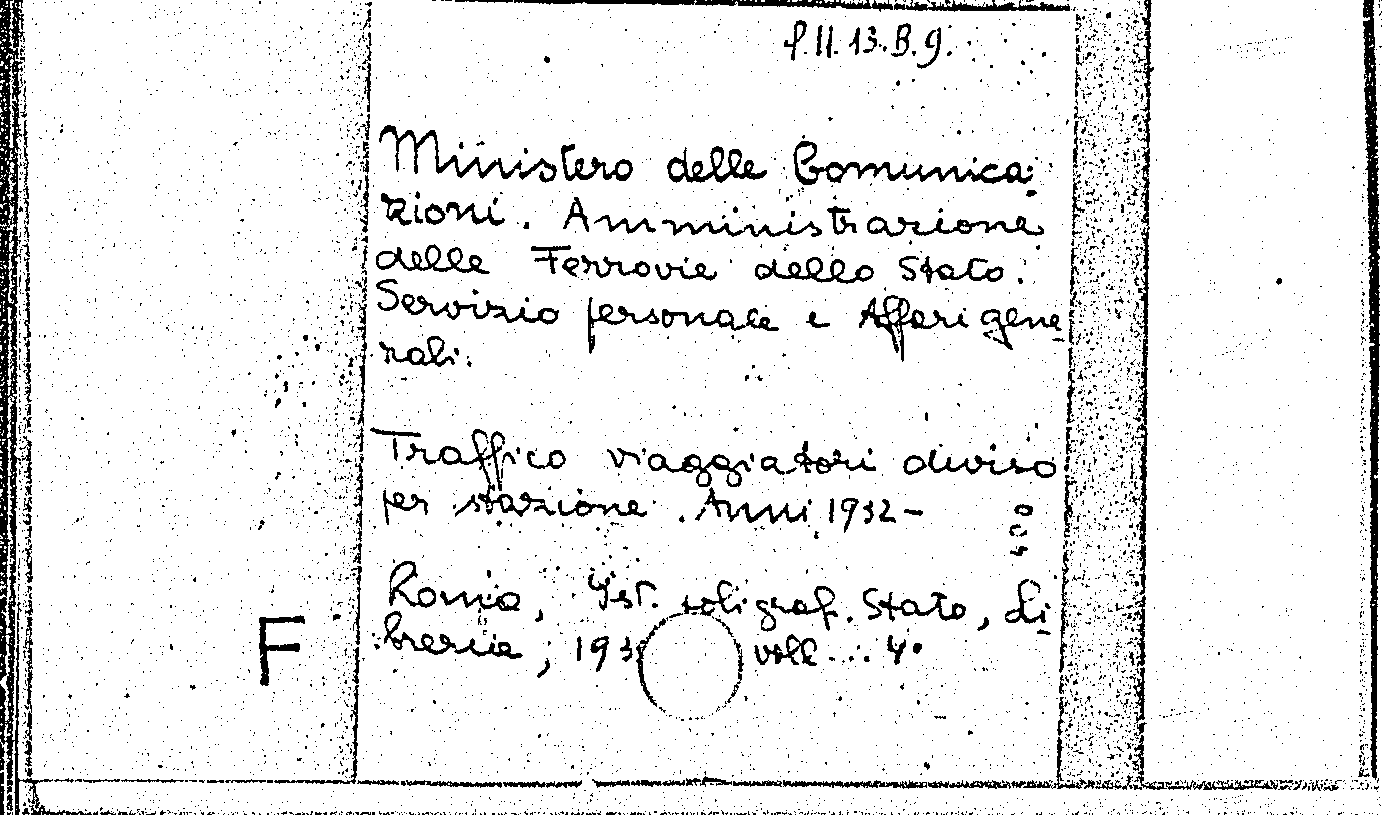 P.II.13.B.9.
Ministero delle Comunica-
zioni. Amministrazione
delle Ferrovie dello Stato.
Servizio personale e Affari gene-
rali.
Traffico viaggiatori diviso
per stazione. Anni 1932-
Roma, Ist. poligraf. Stato, Li-
F
breria, 193 voll... 4°